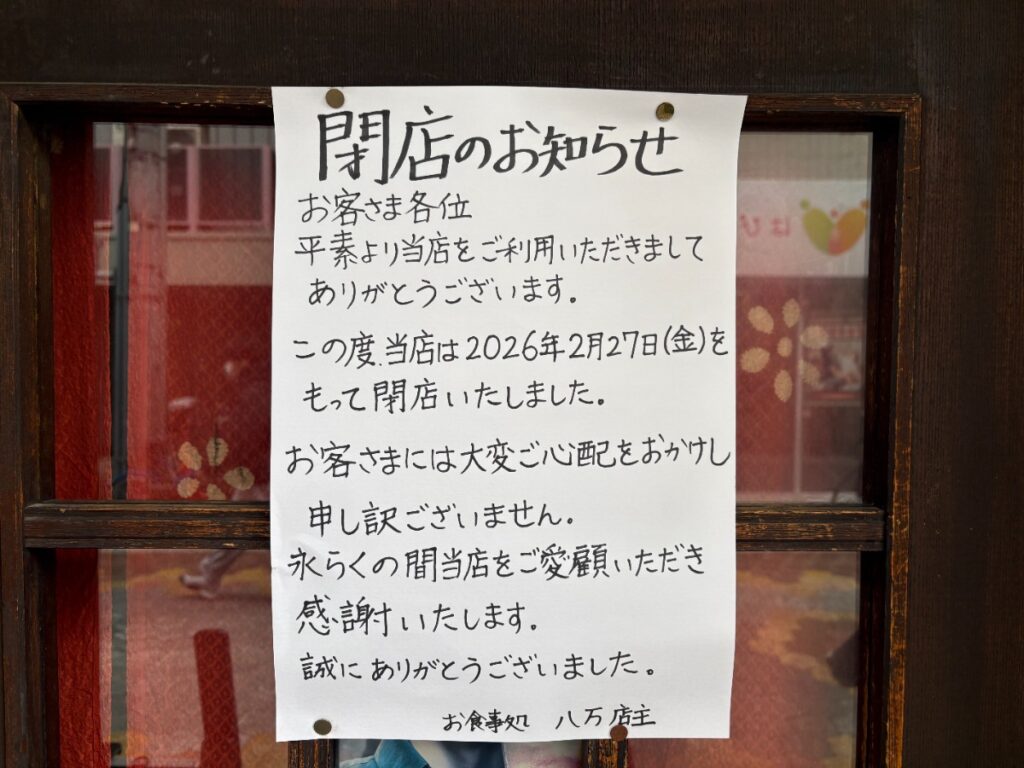 閉店のお知らせ
お客さま各位
平素より当店をご利用いただきまして
ありがとうございます。
この度、当店は2026年2月27日(金)を
もって閉店いたしました。
お客さまには大変ご心配をおかけし
申し訳ございません。
永らくの間当店をご愛顧いただき
感謝いたします。
誠にありがとうございました。
お食事処 八万 店主
はぴ